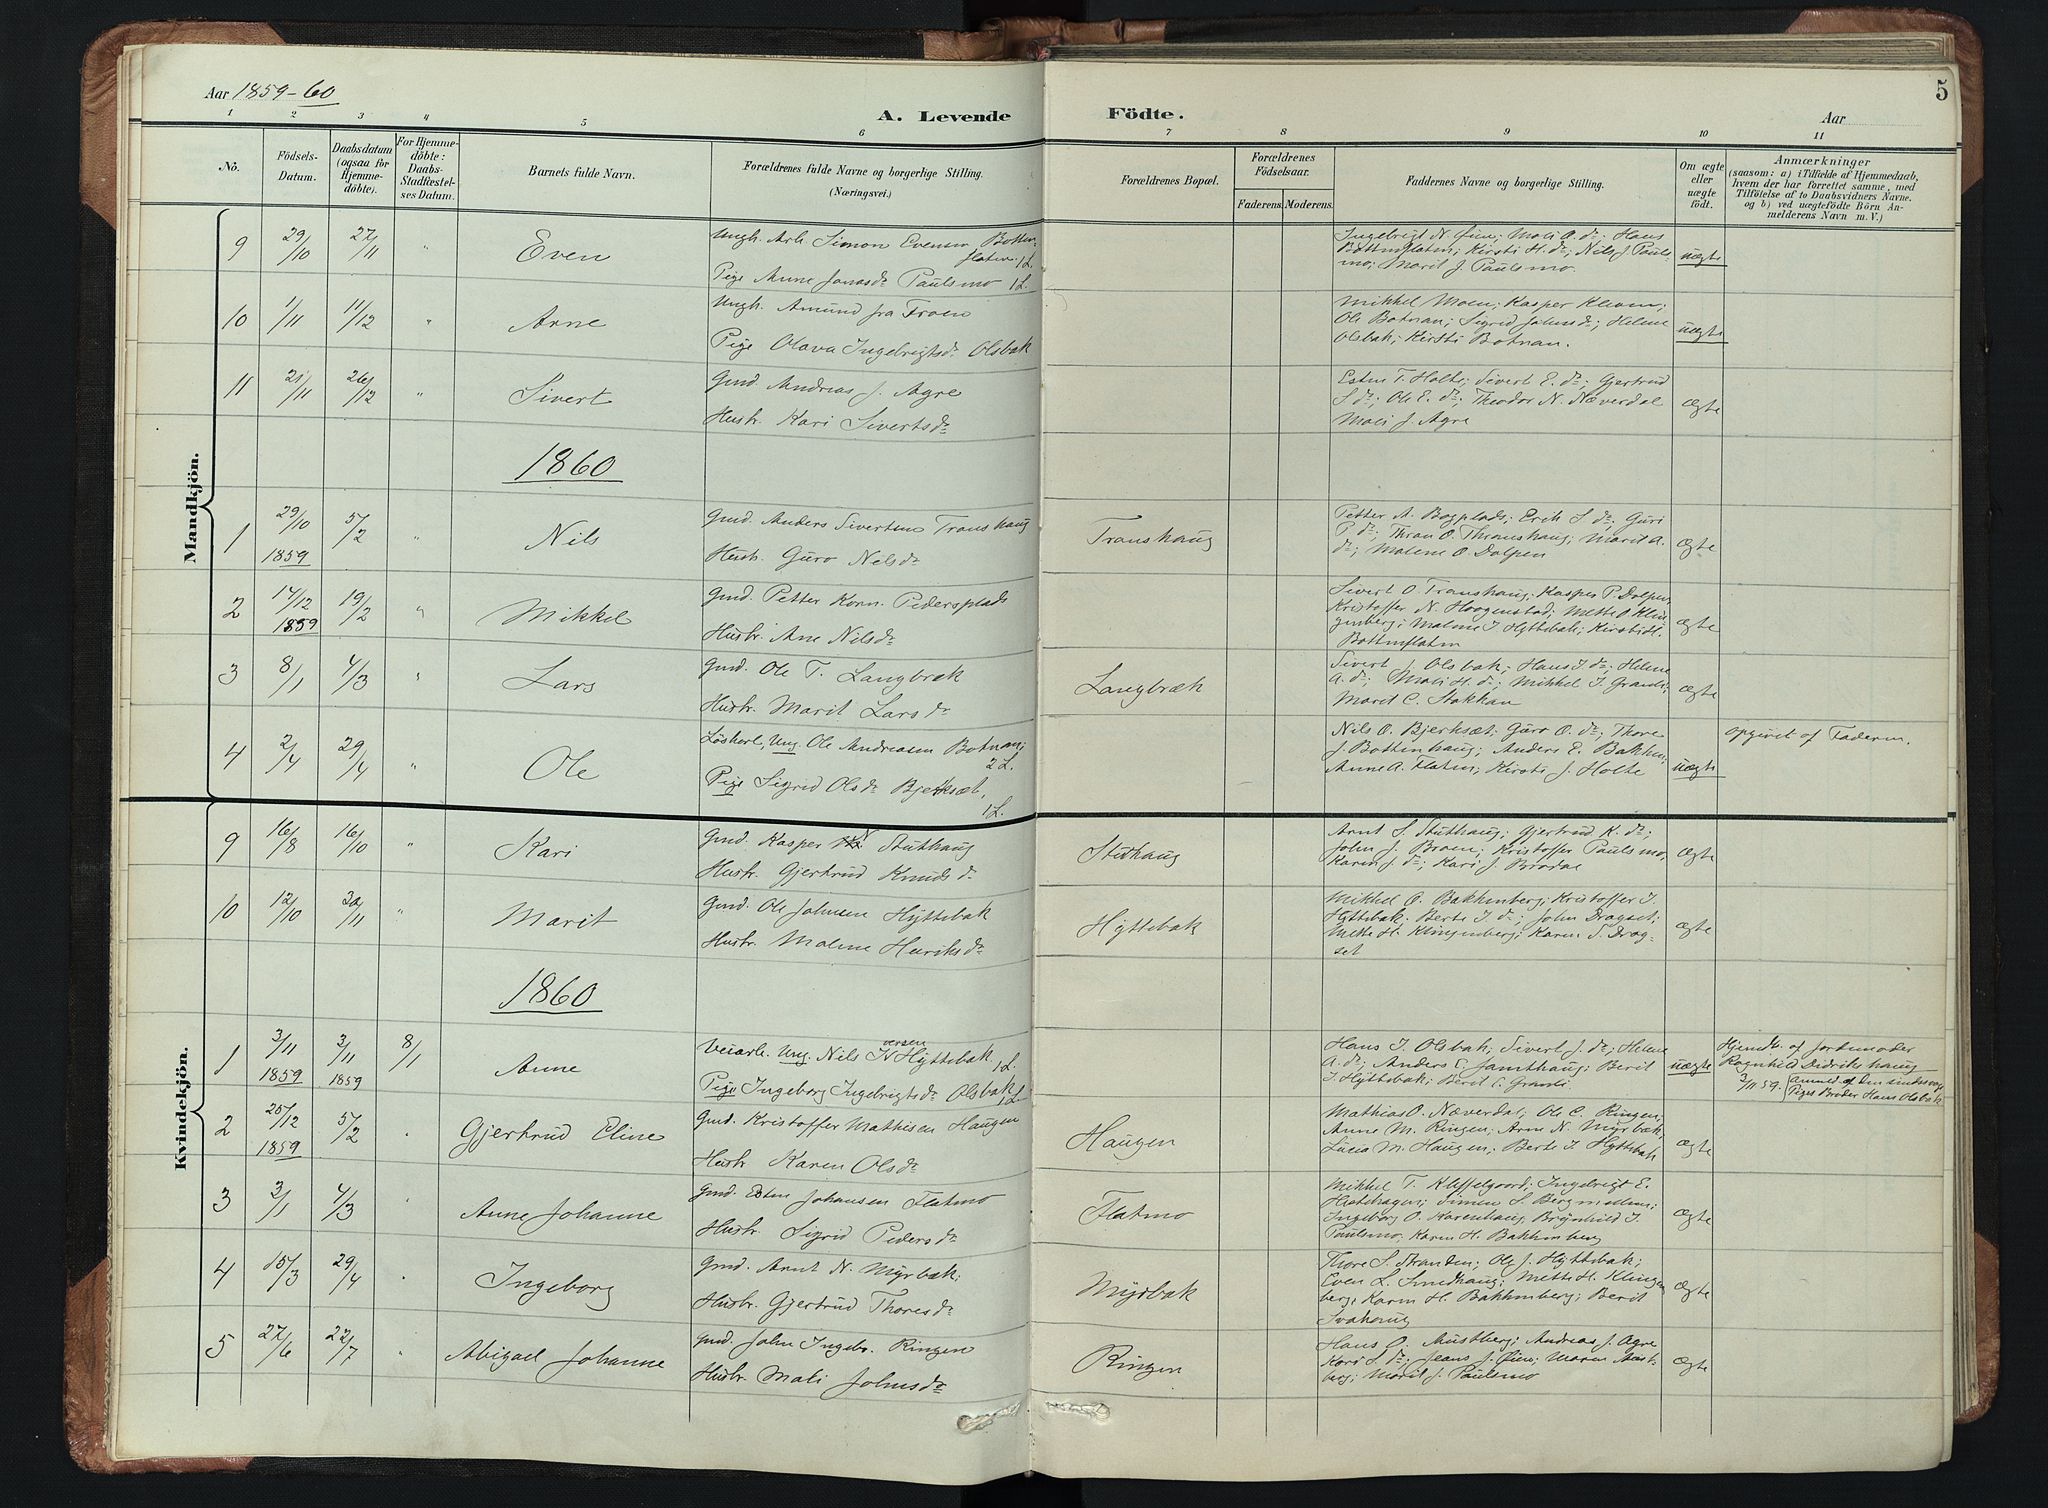 Aar 1859-60
A. Levende Födte.
Aar
5
1 2 3 4 5 6 7 8 9 10 11
No.
Födsels-
Datum.
Daabsdatum
(ogsaa for
Hjemme-
döbte).
For Hjemme-
döbte:
Daabs-
Stadfæstel-
ses Datum.
Barnets fulde Navn.
Forældrenes fulde Navne og borgerlige Stilling.
(Næringsvei.)
Forældrenes Bopæl.
Forældrenes
Fødselsaar.
Faderens. Moderens.
Faddernes Navne og borgerlige Stilling.
Om ægte
eller
uægte
födt.
Anmærkninger
(saasom: a) i Tilfælde af Hjemmedaab,
hvem der har forrettet samme, med
Tilföielse af to Daabsvidners Navne.
og b) ved uægtefödte Börn An-
melderens Navn m. V.)
Mandkjön.
9 29/10 27/11 " Even
Ungk. Arb. Simon Evensen Botten-
flaten. 1 L.
Pige Anne Jonasdr Paulsmo 1 L.
Ingebrigt N. Øien; Mali O. do; Hans
Bottenflaten; Kirsti H. do; Nils J. Pauls-
mo; Marit J. Paulsmo.
uægte
10 1/11 11/12 " Arne
Ungk. Amund fra Froen
Pige Olava Ingebrigtsdr Olsbak
Mikkel Moen; Kasper Kleven;
Ole Botnan; Sigrid Johnsdr; Helene
Olsbak; Kirsti Botnan.
uægte
11 21/11 26/12 " Sivert
Gmd. Andreas J. Agre
Hustr. Kari Sivertsdr
Esten T. Holte; Sivert E. do; Gjertrud
S. do; Ole E. do; Theodor N. Næverdal
Mali J. Agre
ægte
1860
1 29/10 1859 5/2 " Nils
Gmd. Anders Sivertsen Transhaug
Hustr. Guro Nilsdr
Transhaug
Petter A. Bogplads; Erik S. do; Guri
P. do; Thran O. Thranshaug; Marit A.
do; Malene O. Dalpen
ægte
2 17/12 1859 19/2 " Mikkel
Gmd. Petter Korn. Pedersplads
Hustr. Ane Nilsdr
Sivert O. Transhaug; Kasper P. Dolpen,
Kristoffer N. Hoogenstad; Mette O. Klin-
genberg; Malene J. Hyttebak; Kirsti H.
Bottenflaten
ægte
3 8/1 4/3 " Lars
Gmd. Ole T. Langbræk
Hustr. Marit Larsdr
Langbræk
Sivert J. Olsbak; Hans J. do; Helene
A. do; Mali H. do; Mikkel J. Granli;
Marit C. Stokkan
ægte
4 2/4 29/4 " Ole
Løskarl, Ung. Ole Andreasen Botnan;
2 L.
Pige Sigrid Olsdr Bjerksæt,
1 L.
Nils O. Bjerksæt; Guro O. do; Thore
J. Bottenhaug; Anders E. Bakken,
Anne A. Flaten; Kirsti J. Holte
uægte
opgivet af Faderen.
Kvindekjön.
9 16/8 16/10 " Kari
Gmd. Kasper N Stuthaug
Hustr. Gjertrud Knudsdr
Stuthaug
Arnt S. Stuthaug; Gjertrud K. do;
John J. Broen; Kristoffer Paulsmo,
Karen J. do; Kari J. Brødal
ægte
10 12/10 30/11 " Marit
Gmd. Ole Johnsen Hyttebak
Hustr. Malene Henriksdr
Hyttebak
Mikkel O. Bakkenberg; Kristoffer J.
Hyttebak. Berte J. do; John Dragset;
Mette H. Klingenberg; Karen S. Drag-
set
ægte
1860
1 3/11 1859 3/11 1859 8/1 Anne
Veiarb. Ung. Nils Iversen Hyttebak. 1 L.
Pige Ingeborg Ingebrigtsdr Olsbak, 1 L.
Hans J. Olsbak; Sivert J. do; Helene
A. do; Anders C. Jamthaug; Berit
J. Hyttebak; Berit C. Granli
uægte
Hjemdb. af Jordemoder
Ragnhild Didrikshaug
3/11 59. Anmeld. af Den sindssvage
Piges Broder Hans Olsbak
2 25/12 1859 5/2 " Gjertrud Eline
Gmd. Kristoffer Mathisen Haugen
Hustr Karen Olsdr
Haugen
Mathias O. Næverdal; Ole C. Ringen;
Anne M. Ringen; Arne N. Myrbak,
Lucia M. Haugen; Berte J. Hyttebak
ægte
3 3/1 4/3 " Anne Johanne
Gmd. Esten Johansen Flatmo
Hustr. Sigrid Pedersdr
Flatmo
Mikkel T. Kleffelgaard; Ingebrigt E.
Hatshagen; Simen S. Bergmoen;
Ingeborg O. Karenhaug; Brynhild J.
Paulsmo; Karen H. Bakkenberg
ægte
4 15/3 29/4 " Ingeborg
Gmd. Arnt N. Myrbak;
Hustr. Gjertrud Thoresdr
Myrbak
Thore S. Stranden; Ole J. Hyttebak;
Even L. Smedhaug; Mette H. Klingen
berg; Karen H. Bakkenberg; Berit
Svahaug
ægte
5 27/6 22/7 " Abigael Johanne
Gmd. John Ingebr. Ringen
Hustr. Mali Johnsdr
Ringen
Hans O. Austberg; Andreas J. Agre
Kari S. do; Jens J. Øien; Maren Aust-
berg; Marit J. Paulsmo
ægte